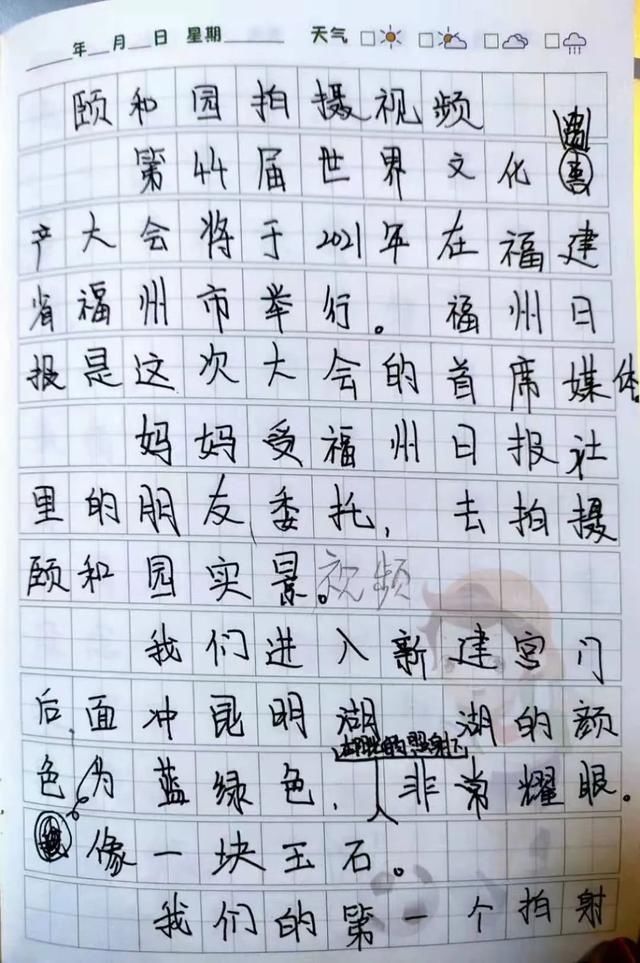 年 月 日 星期 天气
颐和园拍摄视频
第44届世界文化
产大会将于2021年在福建
省福州市举行。福州日
报是这次大会的首席媒体
妈妈受福州日报社
里的朋友委托,去拍摄
颐和园实景。视频
我们进入新建宫门
后,面冲昆明湖 湖的颜
色为蓝绿色,非常耀眼。
像一块玉石。
我们的第一个拍射